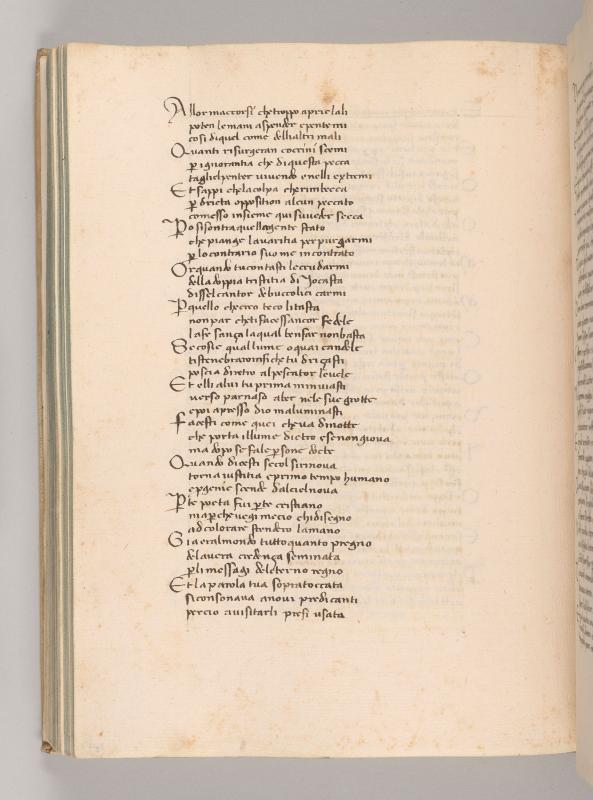 Allor maccorsi che troppo aprir lali
poten le mani a spender e pentemi
cosi di quel come delli altri mali
Quanti risurgeran co crini scemi
per ignorantia che di questa pecca
tagli el penter vivendo e nelli extremi
Et sappi che la colpa che rimbecca
per dricta opposition alcun peccato
comesso insieme qui suo veder secca
Po si son tra quella gente stato
che piange lavaritia per purgarmi
per lo contrario suo me incontrato
Or quando tu contasti le crud armi
della doppia tristitia di Jocasta
disse l cantor de buccolici carmi
Per quello che creo teco li tasta
non par che ti facess ancor fedele
la fe sança la qual ben far non basta
Se cosi e qual lume o quai candele
ti stenebraro insi che tu driçasti
poscia diretro al pescator le vele
Et elli a lui tu prima minviasti
verso parnaso a ber nele sue grotte
e poi apresso dio maluminasti
Facesti come quei che va di notte
che porta il lume dietro e se non giova
ma dopo se fa le persone docte
Quando dicesti secol si rinova
torna iustitia e primo tempo humano
e pgenie scende dal ciel nova
Per te poeta fui per te cristiano
ma perche vegi me cio chi disegno
ad colorare stendero la mano
Gia era l mondo tutto quanto pregno
de la vera credença seminata
per li messagi del eterno regno
Et la parola tua sopra toccata
si consonava a novi predicanti
per cio a visitarli presi usata